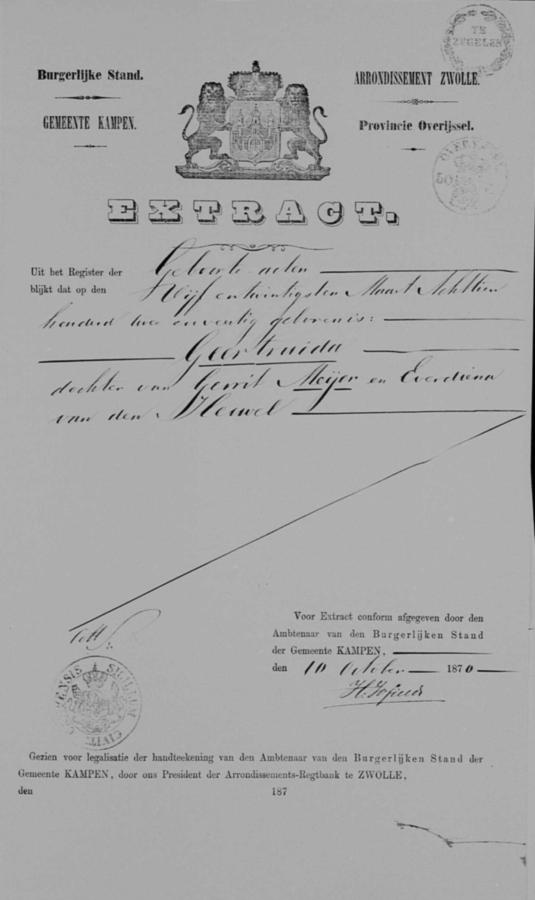 TE
ZEGELEN
Burgerlijke Stand.
GEMEENTE KAMPEN.
ARRONDISSEMENT ZWOLLE.
Provincie Overijssel.
EXTRACT.
Uit het Register der Geboorte acten
blijkt dat op den Vijf entwintigsten Maart Achttien
honderd twee geboren is:
Geertruida
dochter van Gerrit Meijer en Everdiena
van den Heuvel
Voor Extract conform afgegeven door den
Ambtenaar van den Burgerlijken Stand
der Gemeente KAMPEN,
den 10 October 1870
SIGILLUM
Gezien voor legalisatie der handteekening van den Ambtenaar van den Burgerlijken Stand der
Gemeente KAMPEN, door ons President der Arrondissements-Regtbank te ZWOLLE,
den 187